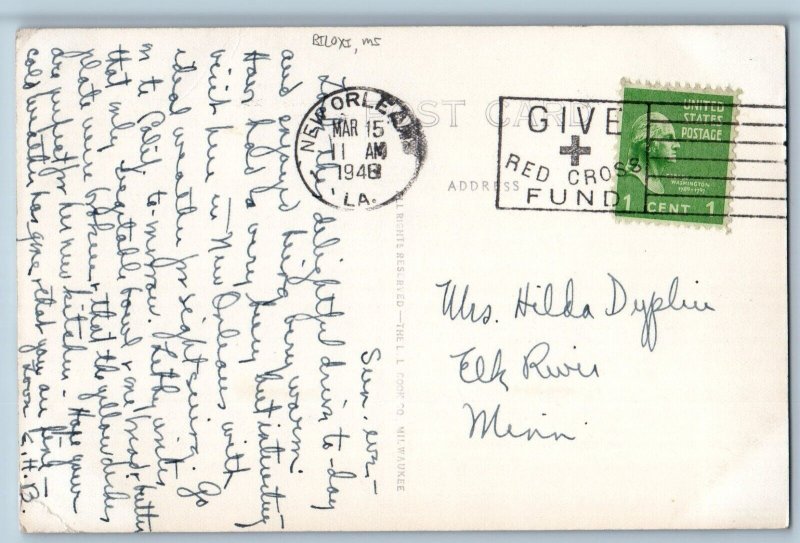 BILOXI, MS
POST CARD
ADDRESS
NEW ORLEANS
MAR 15
11 AM
1948
LA.
GIVE
RED CROSS
FUND
UNITED
STATES
POSTAGE
WASHINGTON
1 CENT 1
Mrs. Hilda Dyplin
Elk River
Minn.
ALL RIGHTS RESERVED - THE L. L. COOK CO. MILWAUKEE
Sun. eve -
delightful drive to-day
and enjoyed being warm.
Have had a very busy but interesting
visit here in New Orleans with
ideal weather for sightseeing. Go
on to Calif. to-morrow. writes
that only vegetable bowl & one bread & butter
plate were broken & that the yellow dishes
are perfect for her new kitchen - Hope your
cold weather has gone & that you are fine -
Love E.H.B.